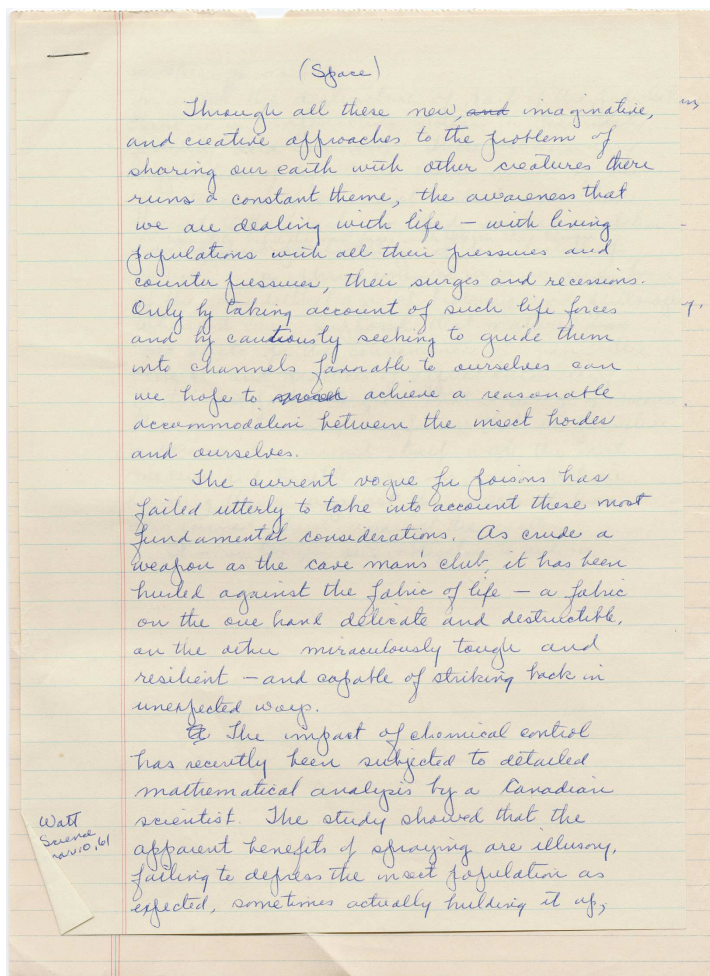 (Space)
Through all these new, and imaginative,
and creative approaches to the problem of
sharing our earth with other creatures there
runs a constant theme, the awareness that
we are dealing with life — with living
populations with all their pressures and
counter pressures, their surges and recessions.
Only by taking account of such life forces
and by cautiously seeking to guide them
into channels favorable to ourselves can
we hope to achieve a reasonable
accommodation between the insect hordes
and ourselves.
The current vogue for poisons has
failed utterly to take into account these most
fundamental considerations. As crude a
weapon as the cave man's club, it has been
hurled against the fabric of life — a fabric
on the one hand delicate and destructible,
on the other miraculously tough and
resilient — and capable of striking back in
unexpected ways.
The impact of chemical control
has recently been subjected to detailed
mathematical analysis by a Canadian
scientist. The study showed that the
apparent benefits of spraying are illusory,
failing to depress the insect population as
expected, sometimes actually building it up,
Watt
Science
Nov 10, 61